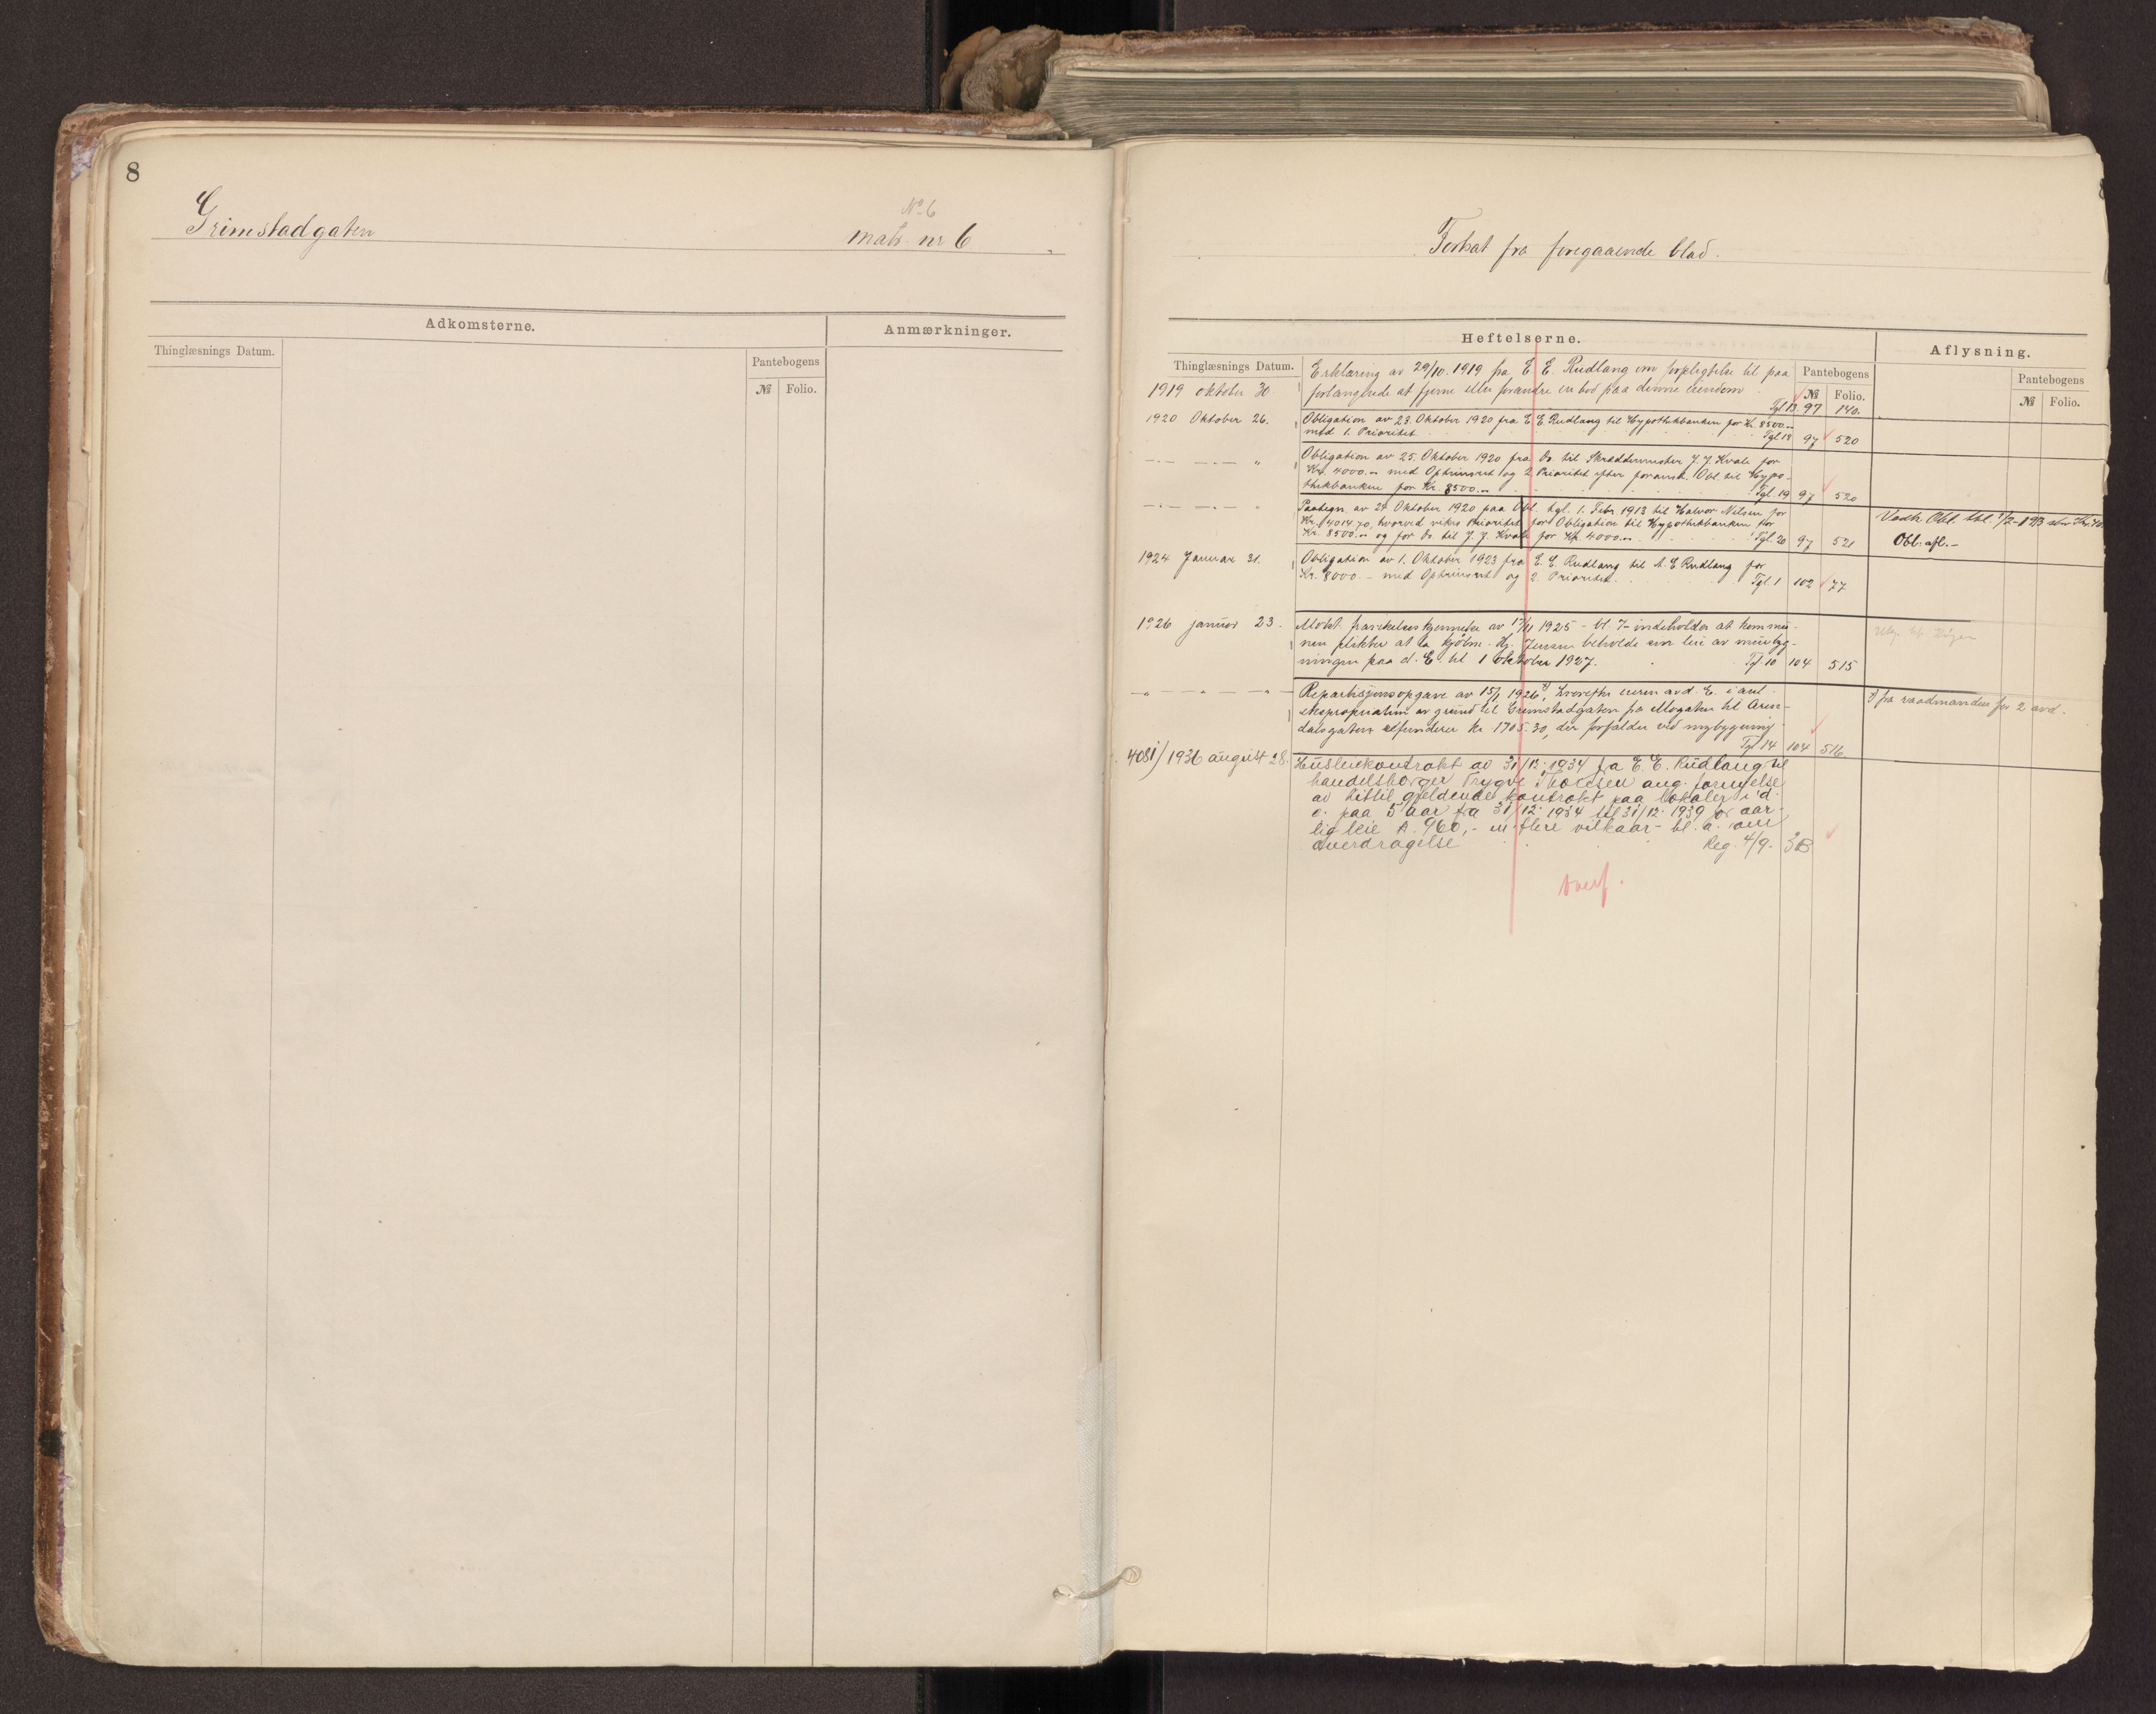 8
Grimstadgaten
No 6
matr. nr 6
Adkomsterne.
Anmærkninger.
Thinglæsnings Datum.
Pantebogens
№ Folio.
Fortsat fra foregaaende blad.
Heftelserne.
Aflysning.
Thinglæsnings Datum.
Pantebogens
№ Folio.
Pantebogens
№ Folio.
1919 oktober 30. Erklæring av 29/10. 1919 fra E. E. Rudlang om forpligtelse til paa
forlangende at fjerne eller forandre en bod paa denne eiendom
Tgl 13 97 140.
1920 Oktober 26. Obligation av 23. Oktober 1920 fra E. E. Rudlang til Hypothekbanken for Kr. 8500.-
med 1. Prioritet. Tgl 18 97 520
Obligation av 25. Oktober 1920 fra Do til Skræddermester J. J. Kvale for
Kr. 4000.- med Optrinsret og 2 Prioritet efter foranst. Obl. til Hypo-
thekbanken for Kr. 8500.- Tgl. 19 97 520
Paategn. av 24 Oktober 1920 paa Obl. tgl. 1. Febr. 1913 til Halvor Nilsen for
Kr. 4014.70, hvorved vikes Prioritet for Obligation til Hypothekbanken for
Kr. 8500.- og for Do til J. J. Kvale for Kr. 4000.- Tgl. 20 97 521
Vedk. Obl. tgl. 1/2-1913
Obl. afl.-
1924 Januar 31. Obligation av 1. Oktober 1923 fra E. E. Rudlang til A. E. Rudlang for
Kr. 8000.- med Optrinsret og 2. Prioritet. Tgl. 1 102 77
1926 januar 23. av 17/11 1925 - bl. indeholder at kommu-
nen plikter at la kjøbm. Hj. Jensen beholde sin leie av
ningen paa d. E. til 1 oktober 1927. Tgl 10 104 515
Repartisjonsopgave av 15/1 1926 x), hvorefter eieren av d. E. i anl.
ekspropriation av grund til Grimstadgaten fra Mogaten til Aren-
dalsgaten refunderer kr 1705.30, der forfalder ved nybygning
Tgl 14 104 516
x) fra raadmanden for 2 avd.
4081) 1936 august 28. Husleiekontrakt av 31/12. 1934 fra E. E. Rudlang til
handelsborger Trygve Thoresen ang. fornyelse
av hittil gjeldende kontrakt paa lokaler i d.
e. paa 5 aar fra 31/12. 1934 til 31/12. 1939 for aar-
lig leie kr. 960,- m. flere vilkaar - bl. a. om
overdragelse Reg. 4/9. 3B
overf.